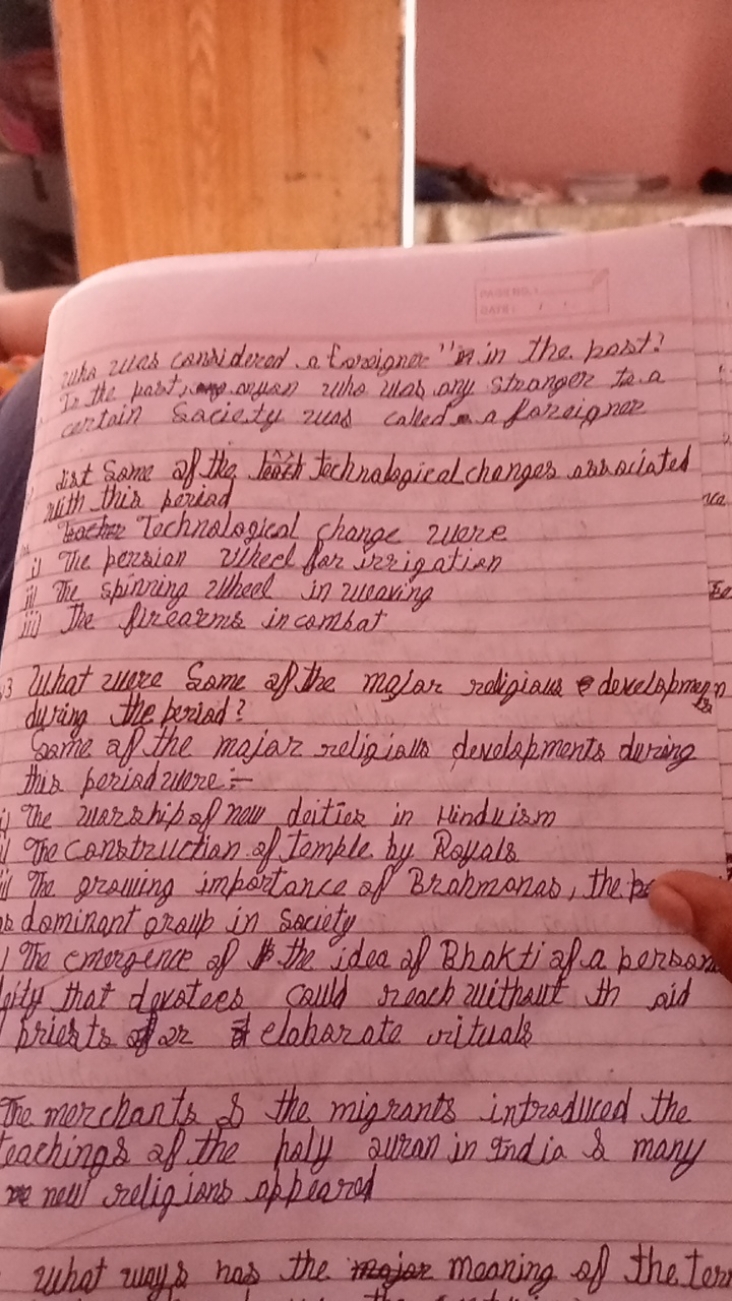 PAGE NO.:
DATE:
who was considered a foreigner" in in the past?
In the past, any who was any stranger to a
certain Society was called a foreigner
list Some of the Technological changes associated
with this period
Technological change were
i) The persian wheel for irrigation
ii) The spinning wheel in weaving
iii) The firearms in combat
3 What were Some of the major religious developmen
ts
during the period?
Some of the major religious developments during
this period were :-
i) The worship of new deities in Hinduism
The construction of Temple by Royals
The growing importance of Brahmanas, the
as dominant group in Society
The emergence of the idea of Bhakti of a person
deity that devotees could reach without th aid
priests or elaborate rituals
The merchants & the migrants introduced the
teachings of the holy quran in India & many
new religions appeared
what ways has the major meaning of the ter